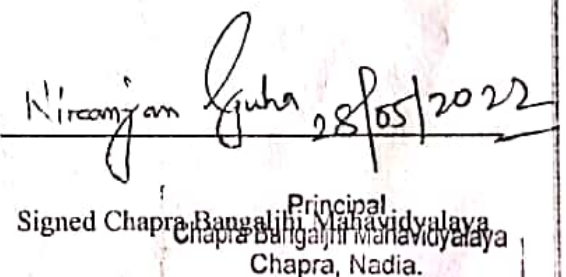 Niranjan Guha 28/05/2022
Principal
Signed Chapra Bangaljhi Mahavidyalaya
Chapra Bangaljhi Mahavidyalaya
Chapra, Nadia.